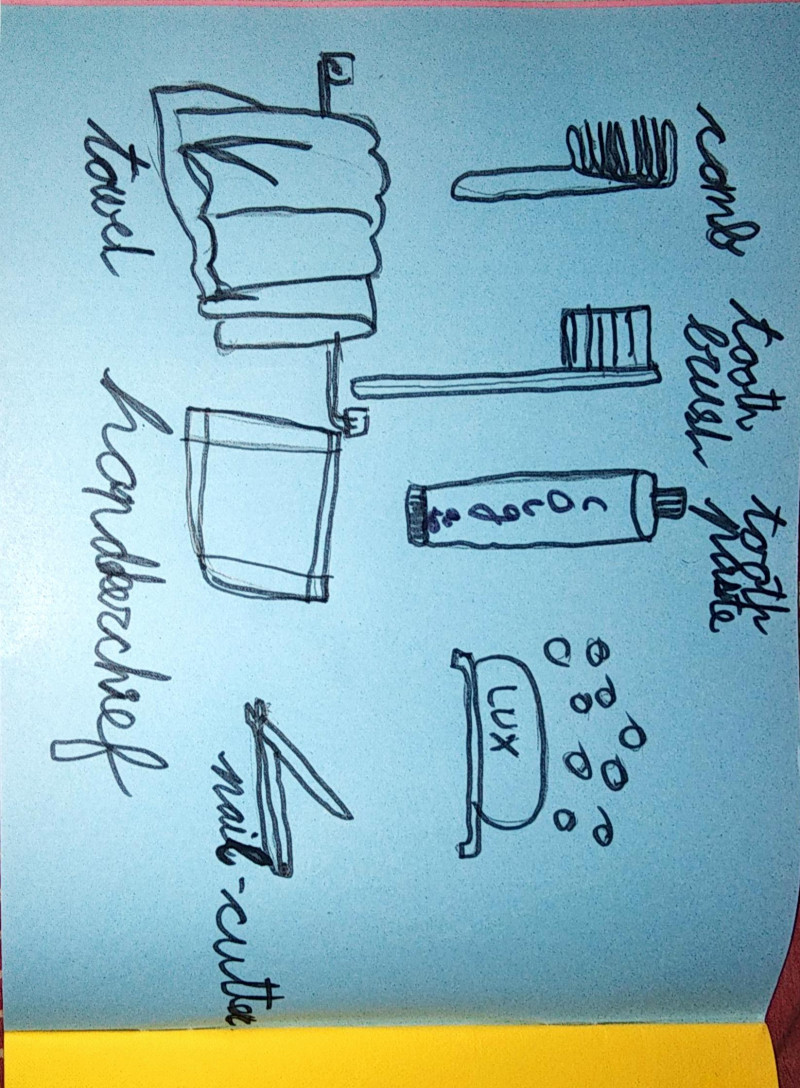 comb
tooth
brush
tooth
paste
LUX
towel
handkerchief
nail-cutter